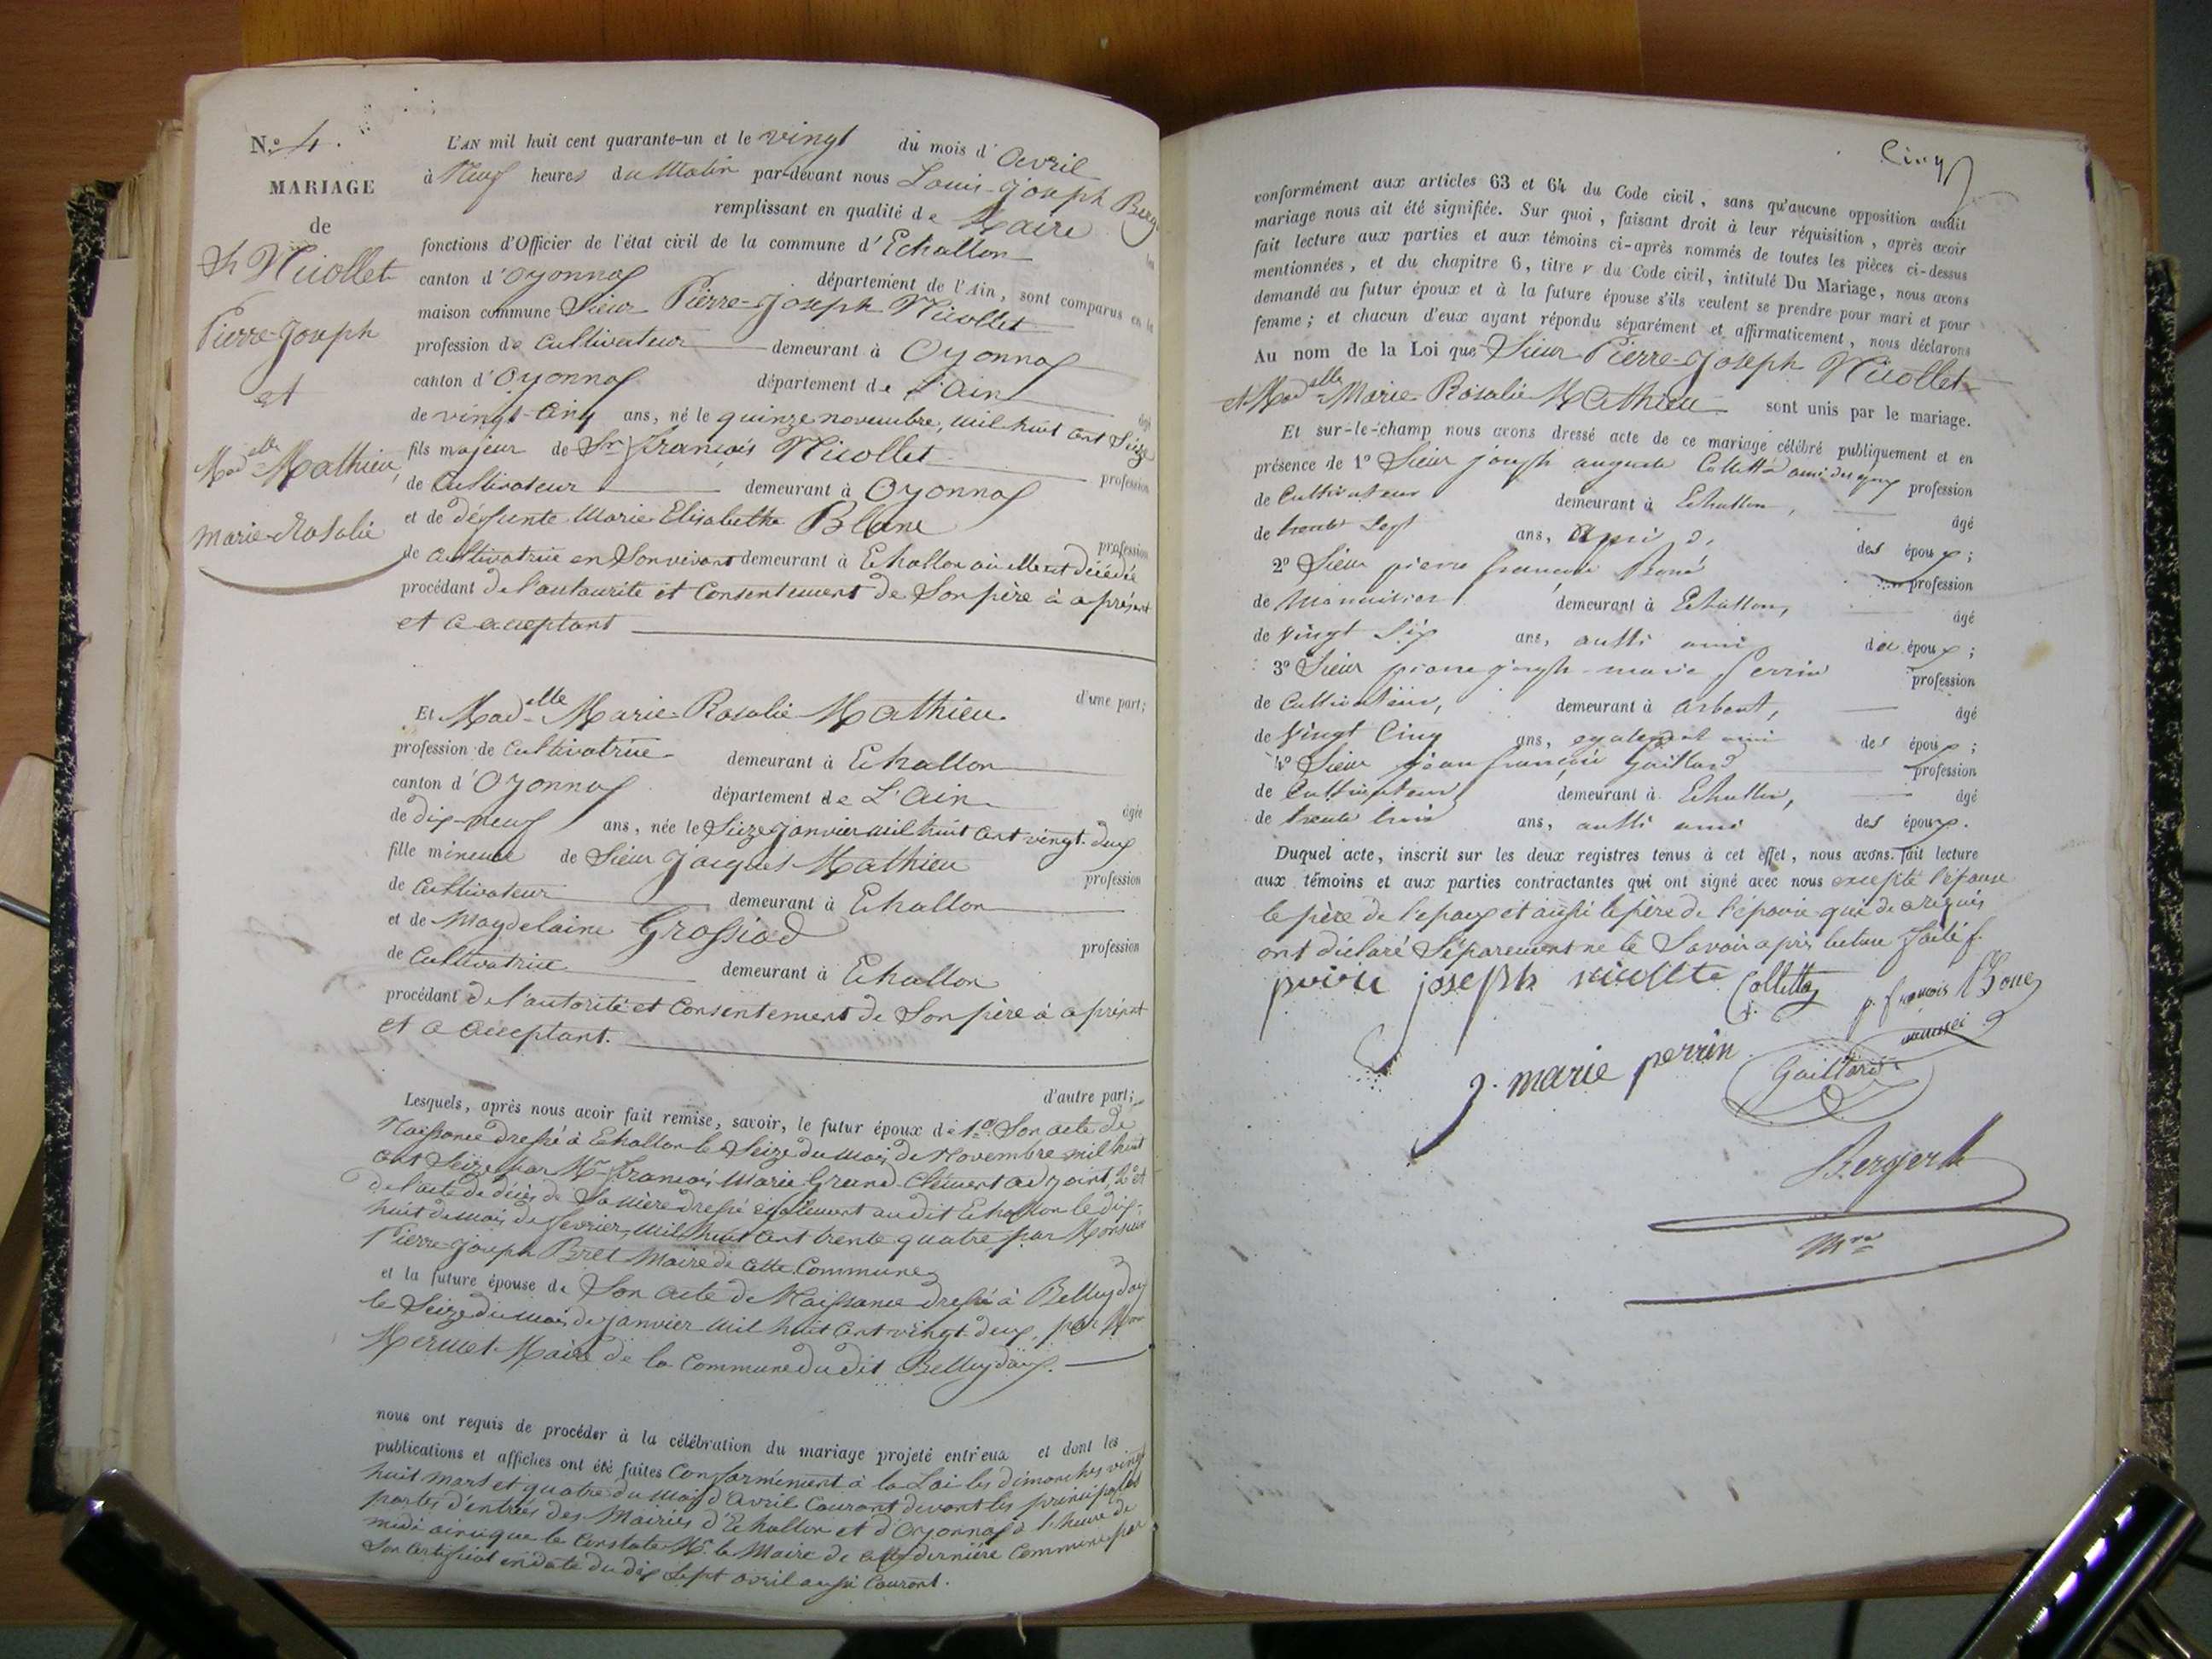 N.º 4.
MARIAGE
de
Sr Nicollet
Pierre-Joseph
et
Madelle Mathieu,
Marie-Rosalie
L'AN mil huit cent quarante-un et le vingt du mois d'avril
à Neuf heures du Matin par-devant nous Louis-Joseph
remplissant en qualité de Maire
fonctions d'Officier de l'état civil de la commune d'Echallon
canton d'Oyonnax département de l'Ain, sont comparus en la
maison commune Sieur Pierre-Joseph Nicollet
profession de Cultivateur demeurant à Oyonnax
canton d'Oyonnax département de L'Ain
de vingt-cinq ans, né le quinze novembre, mil huit cent Seize
fils majeur de Sr françois Nicollet profession
de Cultivateur demeurant à Oyonnax
et de défunte Marie Elisabethe Blanc profession
de Cultivatrice en Son vivant demeurant à Echallon où elle est décédée
procédant de l'autaurité et Consentement de Son père à a présent
et a acceptant
d'une part;
Et Madelle Marie-Rosalie Mathieu
profession de Cultivatrice demeurant à Echallon
canton d'Oyonnax département de L'Ain âgée
de dix-neuf ans, née le Seize janvier mil huit cent vingt-deux
fille mineure de Sieur Jacques Mathieu profession
de Cultivateur demeurant à Echallon
et de Magdelaine Grossiod profession
de Cultivatrice demeurant à Echallon
procédant de l'autorité et Consentement de Son père à a présent
et a acceptant.
d'autre part;
Lesquels, après nous avoir fait remise, savoir, le futur époux de 1º Son acte de
Naissance dressé à Echallon le Seize du mois de Novembre mil huit
cent Seize par Mr françois Marie Grand-Clément adjoint, 2º et
de l'acte de décès de Sa mère dressé également au dit Echallon le dix-
huit du mois de fevrier, mil huit cent trente quatre par Monsieur
Pierre-Joseph Bret Maire de cette Commune
et la future épouse de Son acte de Naissance dressé à Belleydoux
le Seize du mois de janvier mil huit cent vingt-deux, par Mon
Mermet Maire de la Commune du dit Belleydoux.
nous ont requis de procéder à la célébration du mariage projeté entr'eux et dont les
publications et affiches ont été faites Conformément à la Loi les dimanches vingt
huit mars et quatre du mois d'Avril Courant devant les principales
portes d'entrées des Mairies d'Echallon et d'Oyonnax à l'heure de
midi ainsi que le Constate Mr le Maire de cette dernière Commune par
Son Certificat en date du dix Sept avril aussi Courant.
Cinq
conformément aux articles 63 et 64 du Code civil, sans qu'aucune opposition audit
mariage nous ait été signifiée. Sur quoi, faisant droit à leur réquisition, après avoir
fait lecture aux parties et aux témoins ci-après nommés de toutes les pièces ci-dessus
mentionnées, et du chapitre 6, titre v du Code civil, intitulé Du Mariage, nous avons
demandé au futur époux et à la future épouse s'ils veulent se prendre pour mari et pour
femme; et chacun d'eux ayant répondu séparément et affirmativement, nous déclarons
Au nom de la Loi que Sieur Pierre-Joseph Nicollet
et Madelle Marie Rosalie Mathieu sont unis par le mariage.
Et sur-le-champ nous avons dressé acte de ce mariage célébré publiquement et en
présence de 1º Sieur joseph auguste Colletta profession
de Cultivateur demeurant à Echallon, âgé
de trente Sept ans, ami des époux;
2º Sieur pierre francois profession
de Menuisier demeurant à Echallon, âgé
de vingt Six ans, aussi ami des époux;
3º Sieur pierre joseph-marie perrin profession
de Cultivateur, demeurant à arbent, âgé
de vingt Cinq ans, egalement ami des époux;
4º Sieur jean françois gaillard profession
de Cultivateur demeurant à Echallon, âgé
de trente trois ans, aussi ami des époux.
Duquel acte, inscrit sur les deux registres tenus à cet effet, nous avons fait lecture
aux témoins et aux parties contractantes qui ont signé avec nous excepté l'épouse
le père de l'epoux et aussi le père de l'épouse qui de ce requis
ont déclaré Séparement ne le Savoir après lecture faite.
joseph Colletta p. francois
J. marie perrin Gaillard
Bergerd
Mre